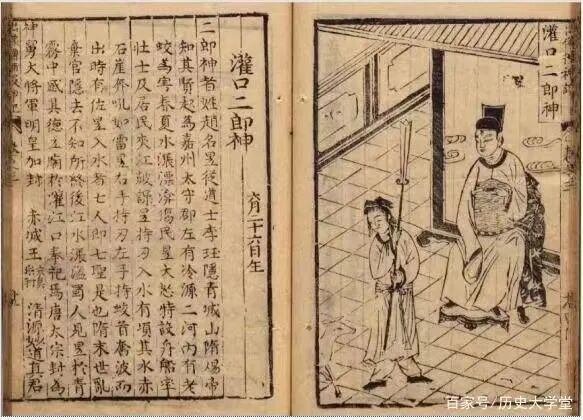 灌口二郎神
灌口二郎神
六月二十六日生
二郎神者姓趙名昱從道士李珏隱青城山隋煬帝
知其賢起為嘉州太守郡左有冷源二河內有老
蛟為害春夏水漲漂渰傷民昱大怒特設舟船率
壯士及居民夾江鼓譟昱持刃入水有頃其水赤
石崖奔吼如雷昱右手持刃左手持蛟首奮波而
出時有佐昱入水者七人即七聖是也隋末世亂
棄官隱去不知所終後江水漲溢蜀人見昱於青
霧中感其德立廟於灌江口奉祀焉唐太宗封為
神勇大將軍明皇加封 赤城王 清源妙道真君
百家号/历史大学堂